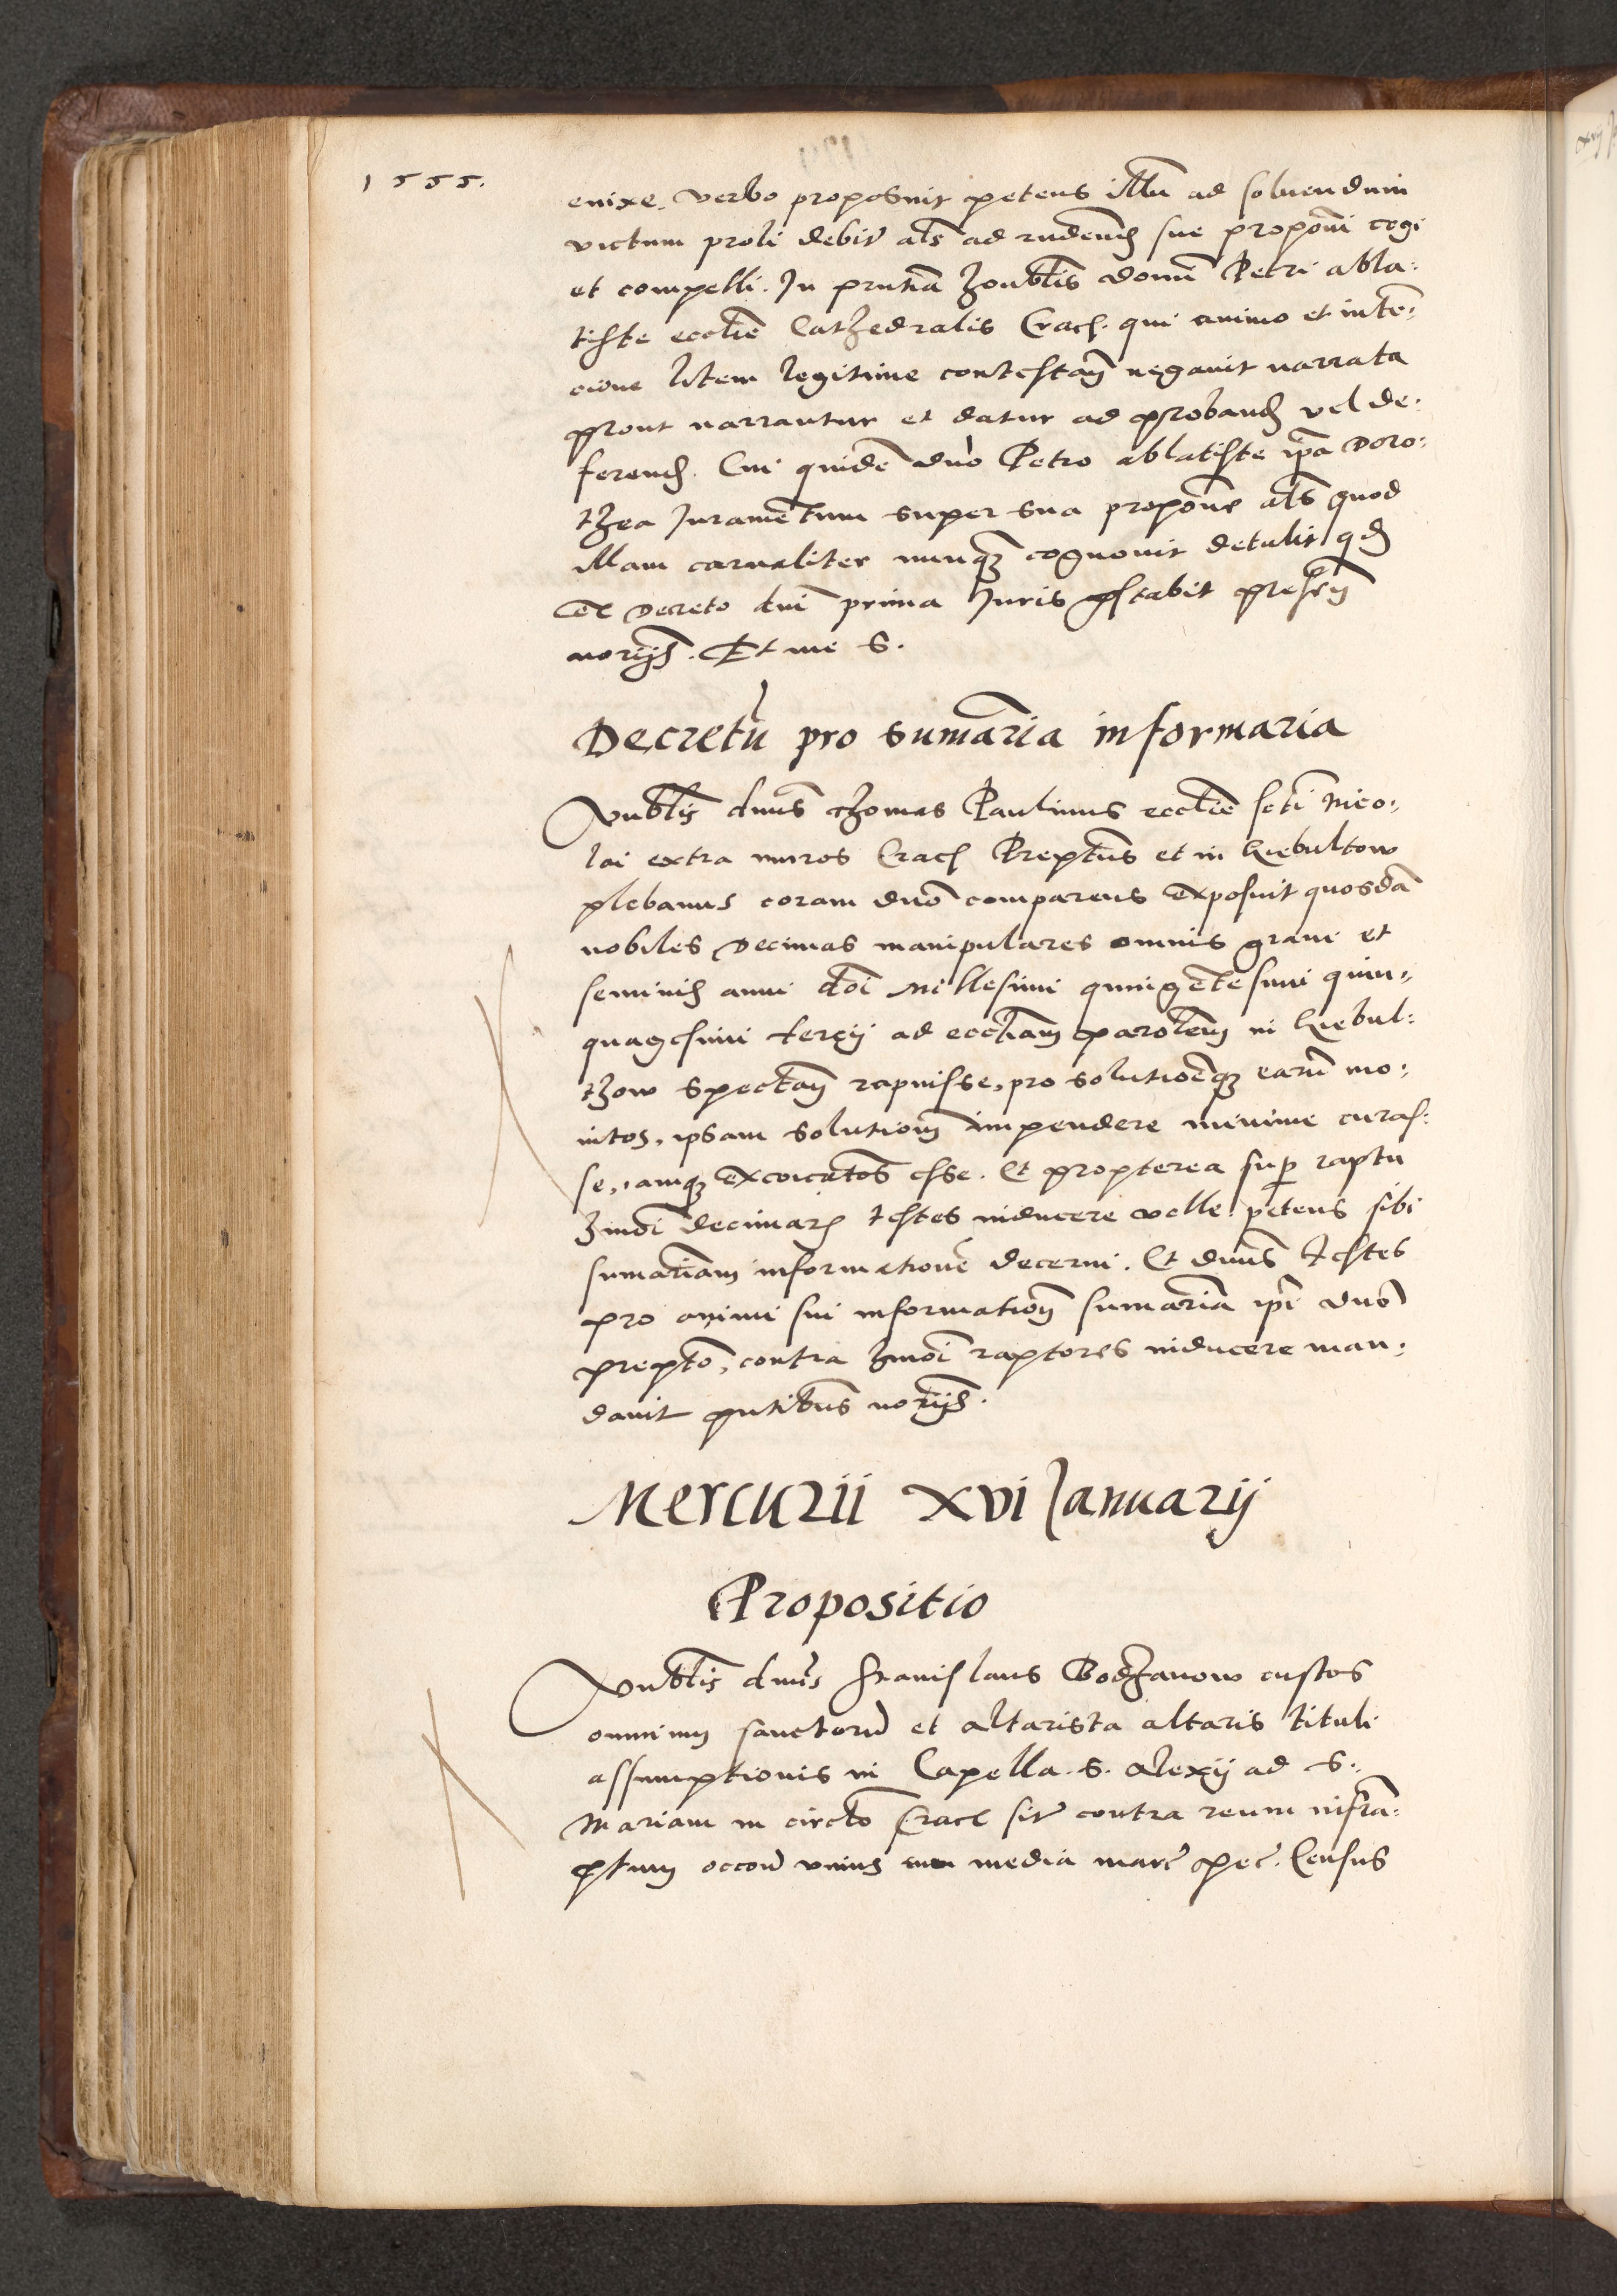 1555.
enixe. verbo proposuit petens illum ad soluendum
victum proli debit als ad ridend sue proponi cogi
et compelli. In pntia honblis domi Petri abla:
tiste ecclie Cathedralis Crac. qui animo et inten:
cione litem legitime contestan negauit narrata
prout narrantur et datur ad proband vel de:
ferend. Cui quidē dno Petro ablatiste ipa Doro:
thea Iuramentum super sua propone als quod
illam carnaliter nunq cognouit detulit qd
ex Decreto dni prima Iuris pstabit presen
norijs. Et me S.
Decretū pro sumaria informaria
Vnblis dnus Thomas Paulinus ecclie scti Nico:
lai extra muros Crac Preptus et in Liebultow
plebanus coram dno comparens exposuit quosdā
nobiles Decimas manipulares omnis grani et
seminis anni dni Millesimi quingētesimi quin:
quagesimi tercij ad eccliam parolem in Liebul:
thow spectan rapuisse, pro solutioneq earū mo:
nitos, ipsam solutionem impendere minime curas:
se, iamq excoicatos esse. Et propterea sup raptu
hmoi decimar testes inducere velle: petens sibi
sumariam informationē decerni. Et dnus testes
pro animi sui information sumariā ipi dno
prepto, contra hmoi raptores inducere man:
dauit pntibus norijs.
Mercurii xvi Ianuarij
Propositio
Vnblis dnus Stanislaus Bodzanow custos
omnium sanctorū et altarista altaris tituli
assumptionis in Capella S. Alexij ad S.
Mariam in circto Crac sit contra reum infra:
ptum occon vnius cum media marc pec. Census